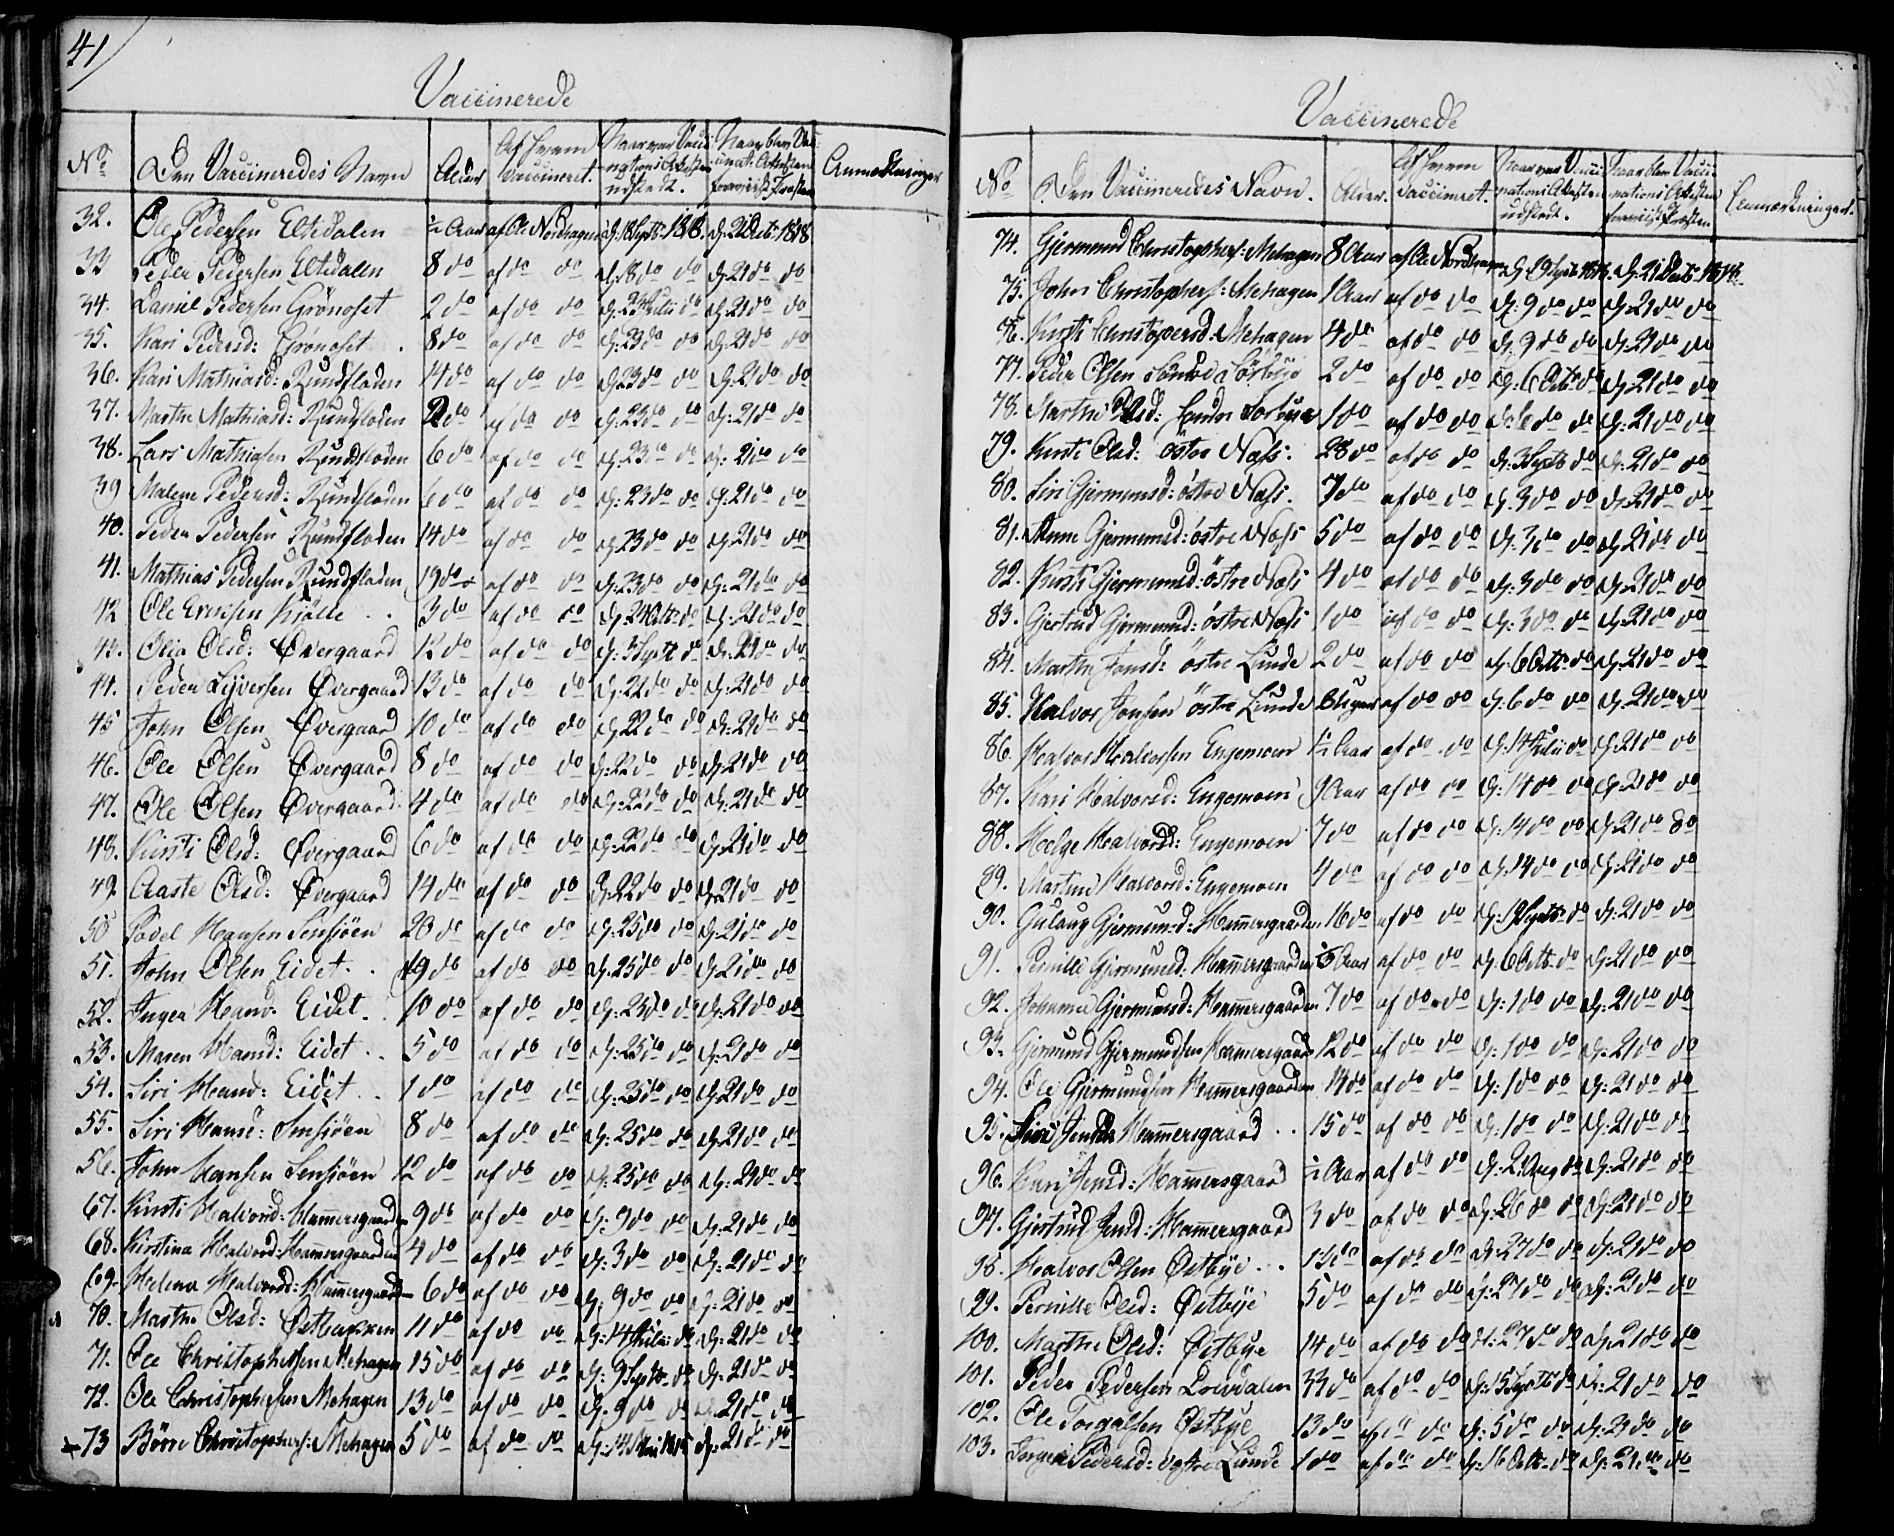 41
Vaccinerede
No Den Vaccineredes Navn Alder Af hvem vaccineret. Naar var Vaccinations Attesten udstedt. Naar blev Vaccinat: Attesten foreviist Præsten Anmærkninger
32. Ole Pedersen Eltedalen ½ Aar af Ole Nordhagen d: 18 Septb: 1818. d: 21 Octb: 1818
33 Peder Pedersen Eltedalen 8 do af do do d: 18 do do d: 21 do do
34. Daniel Pedersen Grönoset 2 do af do do d: 23 Julii do d: 21 do do
35. Kari Pedersd: Gronoset 8 do af do do d: 23 do do d: 21 do do
36. Kari Mathiasd: Rundfloden 14 do af do do d: 23 do do d: 21 do do
37. Marthe Mathiasd: Rundfloden 2 do af do do d: 23 do do d: 21 do do
38. Lars Mathiasen Rundfloden 6 do af do do d: 23 do do d: 21 do do
39 Malene Pedersd: Rundfloden 6 do af do do d: 23 do do d: 21 do do
40. Peder Pedersen Rundfloden 14 do af do do d: 23 do do d: 21 do do
41. Mathias Pedersen Rundfloden 19 do af do do d: 23 do do d: 21 do do
42 Ole Ericksen Kiölle 3 do af do do d: 24 Octb: do d: 21 do do
43. Olia Olsd: Øvergaard 12 do af do do d: 3 Septb do d: 21 do do
44. Peder Syversen Øvergaard 13 do af do do d: 22 do do d: 21 do do
45 John Olsen Øvergaard 10 do af do do d: 22 do do d: 21 do do
46. Ole Olsen Øvergaard 8 do af do do d: 22 do do d: 21 do do
47. Ole Olsen Øvergaard 4 do af do do d: 22 do do d: 21 do do
48. Kirsti Olsd: Øvergaard 6 do af do do d: 22 do do d: 21 do do
49. Aaste Olsd: Øvergaard 14 do af do do d: 22 do do d: 21 do do
50 Povel Hansen Sensiöen 20 do af do do d: 25 do do d: 21 do do
51. John Olsen Eidet. 19 do af do do d: 25 do do d: 21 do do
52. Inger Hansd: Eidet. 10 do af do do d: 25 do do d: 21 do do
53. Maren Hansd: Eidet 5 do af do do d: 25 do do d: 21 do do
54. Siri Hansd: Eidet 1 do af do do d: 25 do do d: 21 do do
55. Siri Hansd: Sensiöen 8 do af do do d: 25 do do d: 21 do do
56. John Hansen Sensiöen 12 do af do do d: 25 do do d: 21 do do
67. Kirsti Halvorsd: Ham̃ersgaarden 9 do af do do d: 9 do do d: 21 do do
68. Kirstina Halvorsd: Ham̃ersgaarden 4 do af do do d: 3 do do d: 21 do do
69. Helena Halvorsd: Ham̃ersgaarden 6 do af do do d: 9 do do d: 21 do do
70. Marthe Olsd: Østbakken 11 do af do do d: 14 Julii do d: 21 do do
71. Ole Christophersen Mehagen 15 do af do do d: 9 Septb: do d: 21 do do
72. Ole Christophersen Mehagen 13 do af do do d: 9 do do d: 21 do do
73 Börre Christophers: Mehagen 5 do af do do d: 14 d: 21 do do
Vaccinerede
No Den Vaccineredes Navn. Alder. Af hvem vaccineret. Naar var Vaccinations Attesten udstedt. Naar blev Vaccinations Attesten foreviist Præsten Anmærkninger.
74. Gjermund Christophers: Mehagen 8 Aar af Ole Nordhagen d: 9 Septb 1818. d: 21 Octb: 1818.
75. John Christophers: Mehagen 1 Aar af do do d: 9 do do d: 21 do do
76. Kirsti Christopersd: Mehagen 4 do af do do d: 9 do do d: 21 do do
77. Peder Olsen Söndre Sörbye 2 do af do do d: 6 Octb: do d: 21 do do
78. Marthe Olsd: Söndre Sorbye 1 do af do do d: 6 do do d: 21 do do
79. Kirsti Olsd: östre Næss. 28 do af do do d: 3 Septb do d: 21 do do
80. Siri Gjermunsd: östre Næss. 7 do af do do d: 3 do do d: 21 do do
81. Anne Gjermunsd: östre Næss 5 do af do do d: 3 do do d: 21 do do
82. Kirsti Gjermunsd: östre Næss 4 do af do do d: 3 do do d: 21 do do
83. Gjertrud Gjermunsd: östre Næss 1 do af do do d: 3 do do d: 21 do do
84. Marthe Jonsd: östre Lunde 2 do af do do d: 6 Octb: do d: 21 do do
85. Halvor Jonsen östre Lunde 8 Uger af do do d: 6 do do d: 21 do do
86. Halvor Halvorsen Engemoen ½ Aar af do do d: 14 Julii do d: 21 do do
87. Kari Halvorsd: Engemoen 9 Aar af do do d: 14 do do d: 21 do do
88. Helge Halvorsd: Engemoen 7 do af do do d: 14 do do d: 21 do do
89. Marthe Halvorsd: Engemoen 4 do af do do d: 14 do do d: 21 do do
90. Gulaug Gjermund: Ham̃ersgaarden 16 do af do do d: 19 Septb: do d: 21 do do
91. Pernille Gjermund: Ham̃ersgaarden ½ Aar af do do d: 6 Octb: do d: 21 do do
92. Johanne Gjermund: Ham̃ersgaarden 7 do af do do d: 1 do do d: 21 do do
93. Gjermund Gjermundsen Ham̃ersgaard 12 do af do do d: 1 do do d: 21 do do
94. Ole Gjermundsen Ham̃ersgaarden 14 do af do do d: 1 do do d: 21 do do
95. Siri Ham̃ersgaard 15 do af do do d: 1 do do d: 21 do do
96. Kari Jensd: Ham̃ersgaard ½ Aar af do do d: 2 Aug do d: 21 do do
97. Gjertrud Jensd: Ham̃ersgaard 3 do af do do d: 26 do do d: 21 do do
98. Halvor Olsen Østbye 13 do af do do d: 27 do do d: 21 do do
99. Pernille Olsd: Østbye 5 do af do do d: 27 do do d: 21 do do
100. Marthe Olsd: Østbye 14 do af do do d: 27 do do d: 21 do do
101. Peder Pedersen Lovdalen 33 do af do do d: 15 Septb do d: 21 do do
102. Ole Torgalsen Østbye 13 do af do do d: 5 do do d: 21 do do
103. Pedersd: östre Lunde 1 do af do do d: 16 Octb: do d: 21 do do